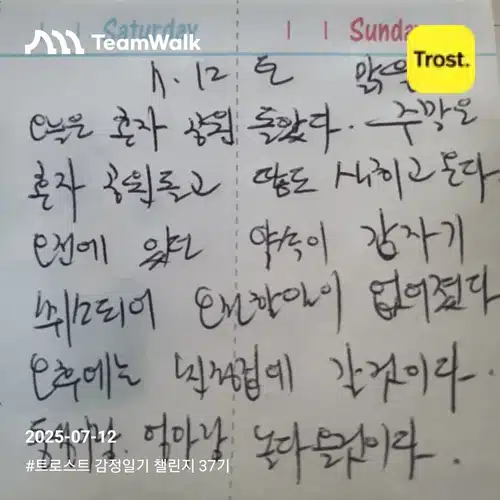 Saturday Sunday
TeamWalk
Trost.
7.12 토 맑음
오늘은 혼자 공원 돌았다. 주말은
혼자 공원돌고 땀도 식히고 온다
오전에 있던 약속이 갑자기
취소되어 오전할일이 없어졌다
오후에는 친정집에 갈것이다.
엄마랑 놀다 올것이다.
2025-07-12
#트로스트 감정일기 챌린지 37기